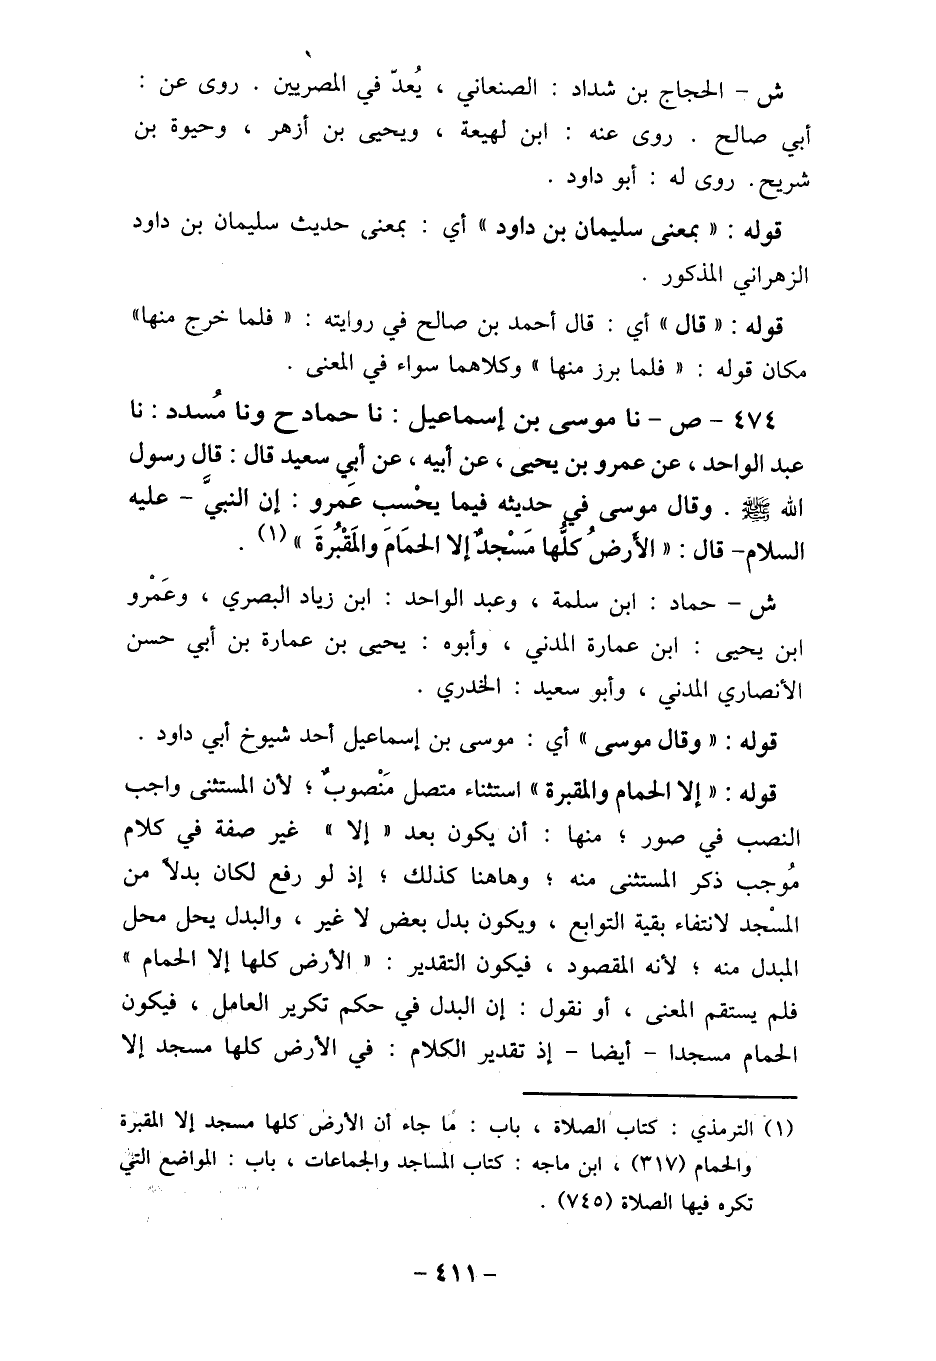 ش – الحجاج بن شداد : الصنعاني ، يُعدّ في المصريين . روى عن :
أبي صالح . روى عنه : ابن لهيعة ، ويحيى بن أزهر ، وحيوة بن
شريح. روى له : أبو داود .
قوله : « بمعنى سليمان بن داود » أي : بمعنى حديث سليمان بن داود
الزهراني المذكور .
قوله : « قال » أي : قال أحمد بن صالح في روايته : « فلما خرج منها»
مكان قوله : « فلما برز منها » وكلاهما سواء في المعنى .
٤٧٤ – ص – نا موسى بن إسماعيل : نا حماد ح ونا مُسدد : نا
عبد الواحد ، عن عمرو بن يحيى ، عن أبيه ، عن أبي سعيد قال : قال رسول
الله ﷺ . وقال موسى في حديثه فيما يحْسب عَمرو : إن النبيَّ – عليه
السلام– قال : « الأرضُ كلُّها مَسْجدٌ إلا الحمَامَ والمَقْبُرةَ » (١) .
ش – حماد : ابن سلمة ، وعبد الواحد : ابن زياد البصري ، وعَمْرو
ابن يحيى : ابن عمارة المدني ، وأبوه : يحيى بن عمارة بن أبي حسن
الأنصاري المدني ، وأبو سعيد : الخدري .
قوله : « وقال موسى » أي : موسى بن إسماعيل أحد شيوخ أبي داود .
قوله : « إلا الحمام والمقبرة » استثناء متصل مَنْصوبٌ ؛ لأن المستثنى واجب
النصب في صور ؛ منها : أن يكون بعد « إلا » غير صفة في كلام
مُوجب ذكر المستثنى منه ؛ وهاهنا كذلك ؛ إذ لو رفع لكان بدلاً من
المسْجد لانتفاء بقية التوابع ، ويكون بدل بعض لا غير ، والبدل يحل محل
المبدل منه ؛ لأنه المقصود ، فيكون التقدير : « الأرض كلها إلا الحمام »
فلم يستقم المعنى ، أو نقول : إن البدل في حكم تكرير العامل ، فيكون
الحمام مسجدا – أيضا – إذ تقدير الكلام : في الأرض كلها مسجد إلا
(١) الترمذي : كتاب الصلاة ، باب : ما جاء أن الأرض كلها مسجد إلا المقبرة
والحمام (٣١٧) ، ابن ماجه : كتاب المساجد والجماعات ، باب : المواضع التي
تكره فيها الصلاة (٧٤٥) .
– ٤١١ –